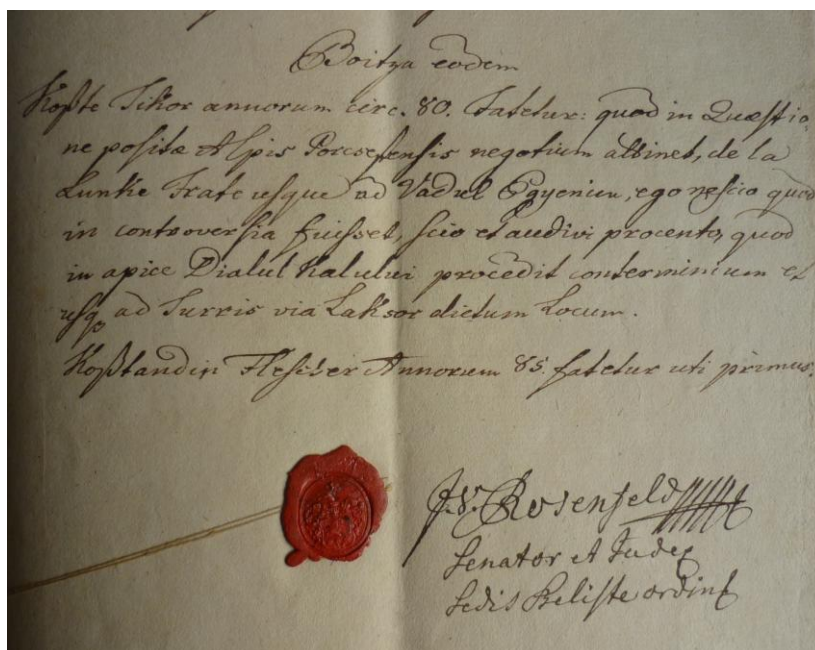 Boitza eodem
Koste Sikor annorum circ. 80. fatetur: quod in Quæstio
ne positæ Alpis Porcsesensis negotium attinet, de la
Lunke Frate usque ad Vadul Egyenieu, ego nescio quod
in controversia fuisset, scio et audivi pro cento, quod
in apice Dialul Kalului procedit conterminium et
usq ad Turris via Laksor dictum Locum.
Kostandin Flesster Annorum 85. fatetur uti primus.
J. V. Rosenfeld
Senator et Judex
Sedis Seliste ordins